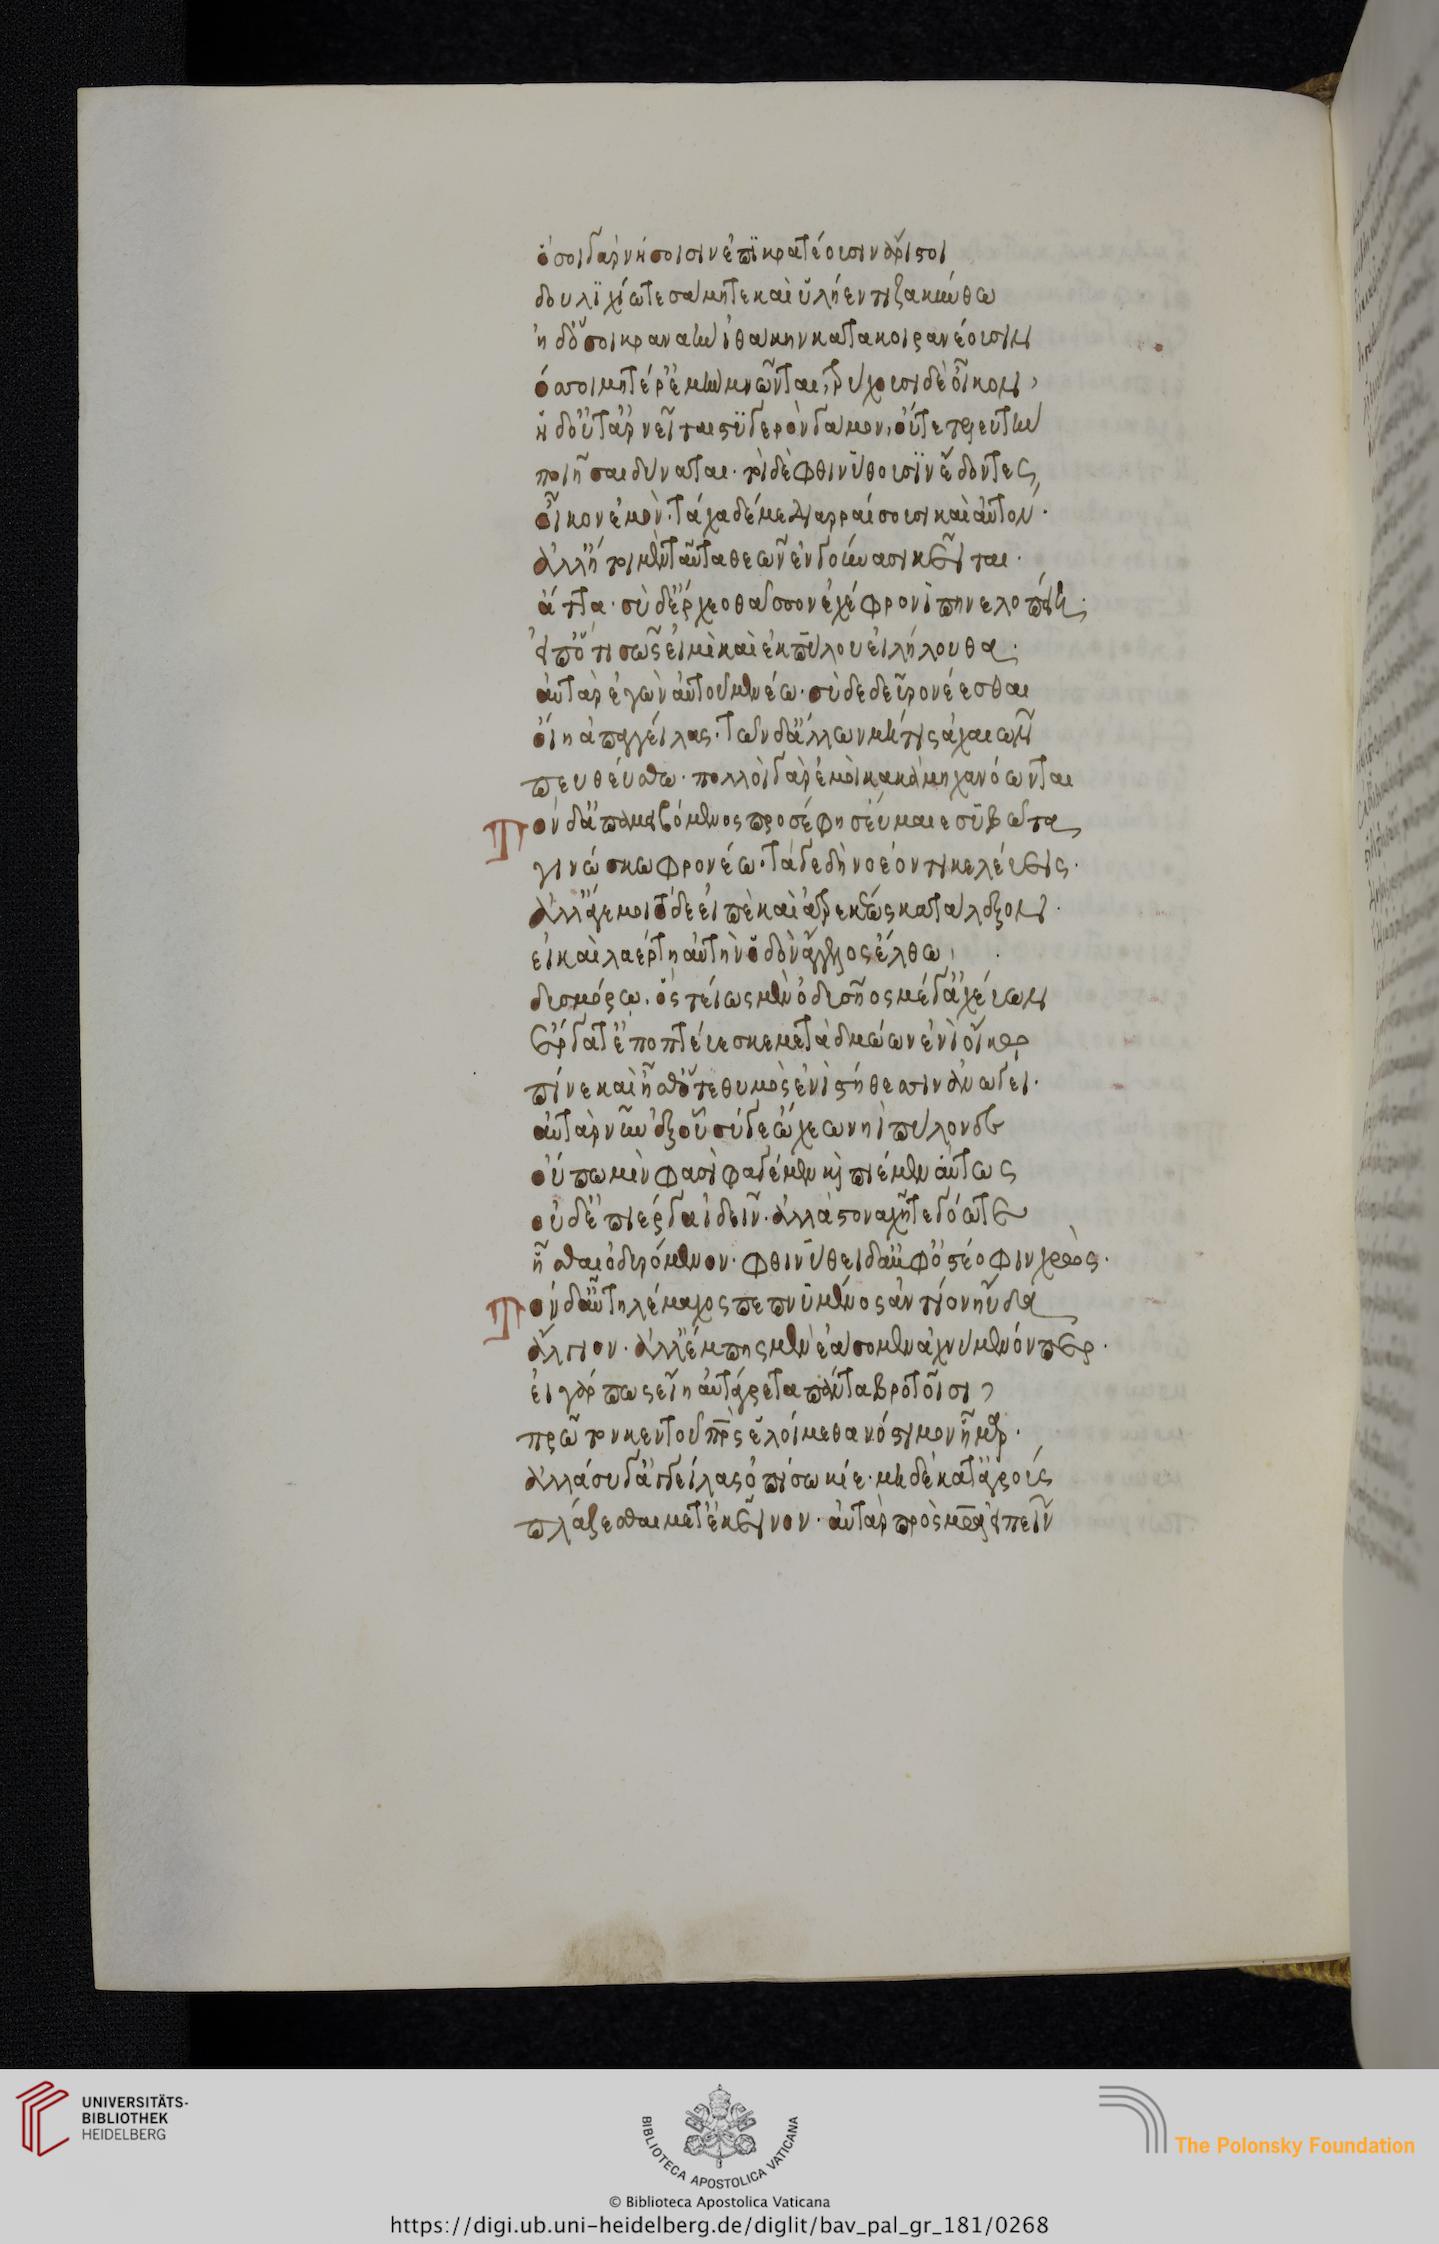 ὅσοι γὰρ νήσοισιν ἐπικρατέουσιν ἄριστοι
δουλιχίω τε σάμη τε καὶ ὑλήεντι ζακύνθω
ἠδ ὅσοι κραναὴν ἰθάκην κατακοιρανέουσιν
ὅσσοι μητέρ ἐμὴν μνῶνται, τρύχουσι δὲ οἶκον,
ἡ δ οὔτ ἀρνεῖται στυγερὸν γάμον, οὔτε τελευτὴν
ποιῆσαι δύναται· τοὶ δὲ φθινύθουσιν ἔδοντες
οἶκον ἐμὸν· τάχα δέ με διαρραίσουσι καὶ αὐτόν·
ἀλλ ἤτοι μὲν ταῦτα θεῶν ἐν γούνασι κεῖται·
ἄττα· σὺ δ ἔρχεο θᾶσσον ἐχέφρονι πηνελοπείη·
εἴφ ὅτι σῶς εἰμὶ καὶ ἐκ πύλου εἰλήλουθα·
αὐτὰρ ἐγὼν αὐτοῦ μενέω· σὺ δὲ δεῦρο νέεσθαι
οἴη ἀπαγγείλας· τῶν δ ἄλλων μή τις ἀχαιῶν
πευθέσθω· πολλοὶ γὰρ ἐμοὶ κακὰ μηχανόωνται
Τὸν δ ἀπαμειβόμενος προσέφης εὔμαιε συβῶτα
γινώσκω φρονέω· τά γε δὴ νοέοντι κελεύεις·
ἀλλ ἄγε μοι τόδε εἰπὲ καὶ ἀτρεκέως κατάλεξον·
εἰ καὶ λαέρτη αὐτὴν ὁδὸν ἄγγελος ἔλθω,
δυσμόρω. ὃς τείως μὲν ὀδυσῆος μέγ ἀχεύων
ἔργα τ ἐποπτεύεσκε μετὰ δμώων ἐνὶ οἴκω
πῖνε καὶ ἦσθ ὅτε θυμὸς ἐνὶ στήθεσσιν ἀνώγει·
αὐτὰρ νῦν ἐξ οὗ σύ γε ᾤχεω νηὶ πύλονδε
οὔπω μὶν φασὶ φαγέμεν κὶ πιέμεν αὔτως
οὐδ ἐπὶ ἔργα ἰδεῖν· ἀλλὰ στοναχῆ τε γόω τε
ἧσθαι ὀδυρόμενον· φθινύθει δ ἀμφ ὀστεόφιν χρὼς·
Τὸν δ αὖ τηλέμαχος πεπνυμένος ἀντίον ηὔδα
ἄλγιον· ἀλλ ἔμπης μὲν ἐάσομεν ἀχνυμενόν περ·
εἰ γάρ πως εἴη αὐτάγρετα πάντα βροτοῖσι,
πρῶτον κεν τοῦ πρς ἑλοίμεθα νόστιμον ἦμαρ·
ἀλλὰ σύ γ ἀγγείλας ὀπίσω κίε· μὴ δὲ κατ ἀγροὺς
πλάζεσθαι μετ ἐκεῖνον· αὐτὰρ πρὸς μρα εἰπεῖν
UNIVERSITÄTS-
BIBLIOTHEK
HEIDELBERG
BIBLIOTECA APOSTOLICA VATICANA
The Polonsky Foundation
© Biblioteca Apostolica Vaticana
https://digi.ub.uni-heidelberg.de/diglit/bav_pal_gr_181/0268